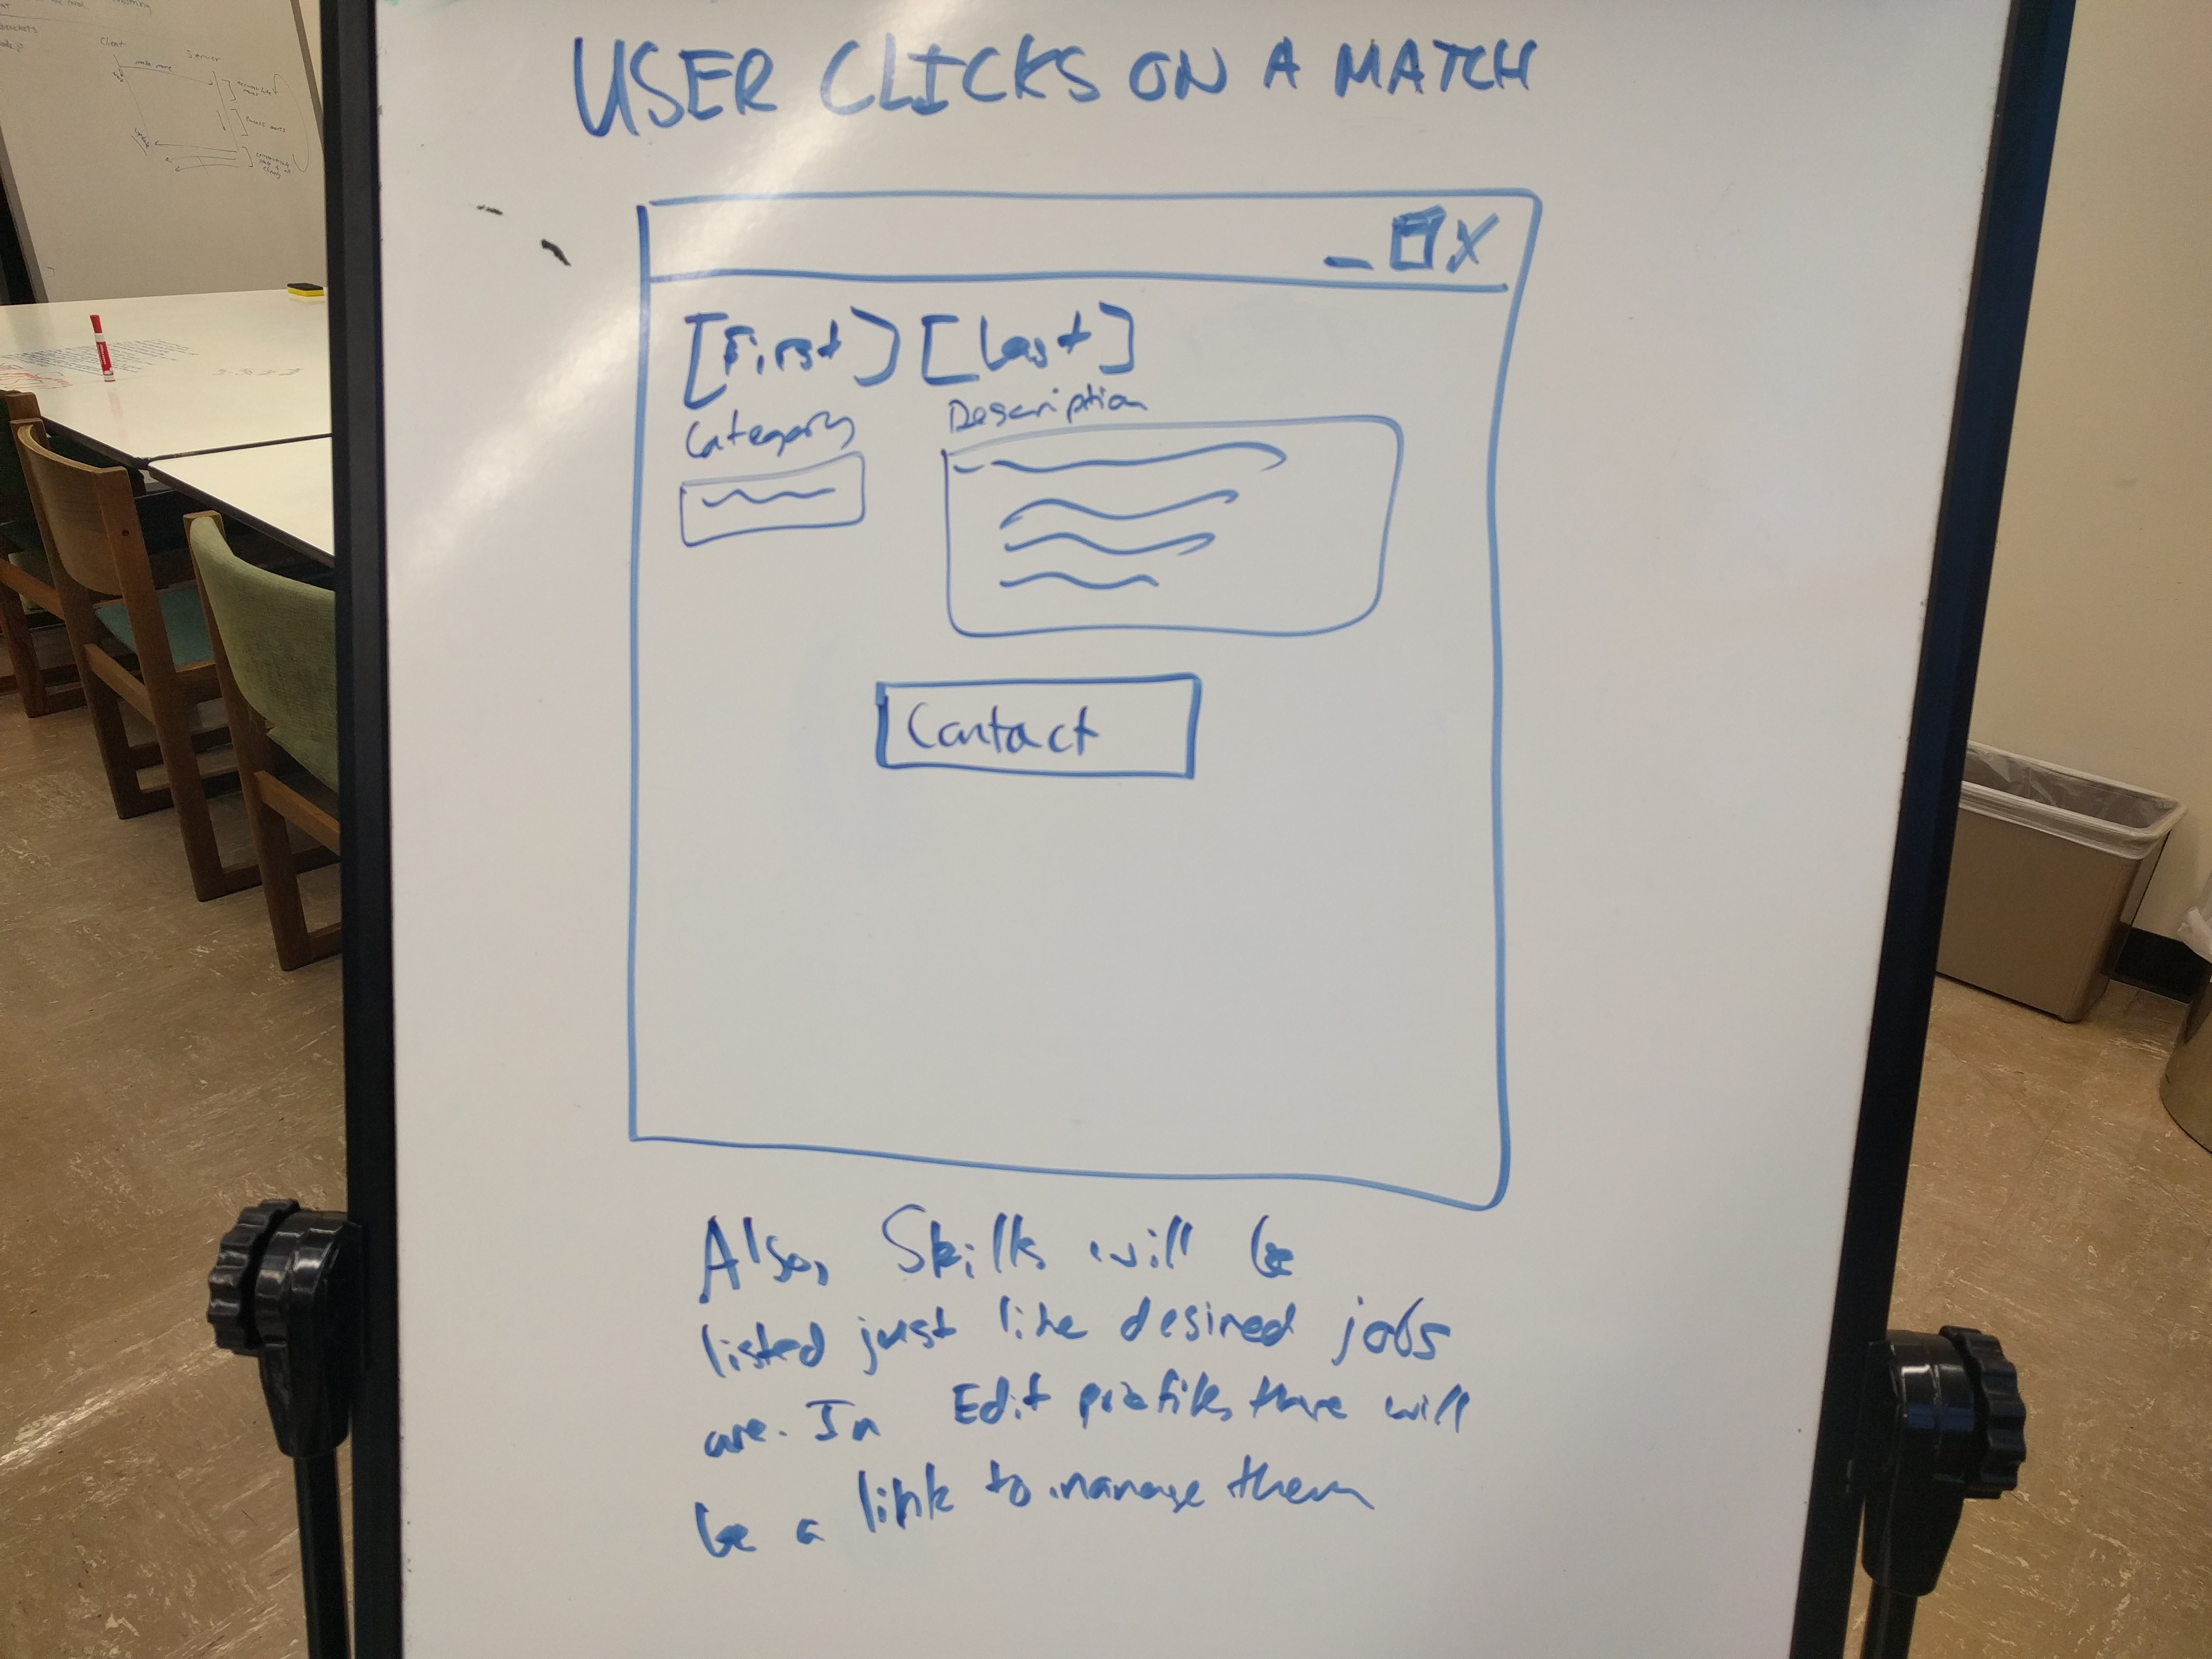 USER CLICKS ON A MATCH
_ X
[First] [Last]
Category
Description
Contact
Also, Skills will be
listed just like desired jobs
are. In Edit profile, there will
be a link to manage them
Client
Server
make move